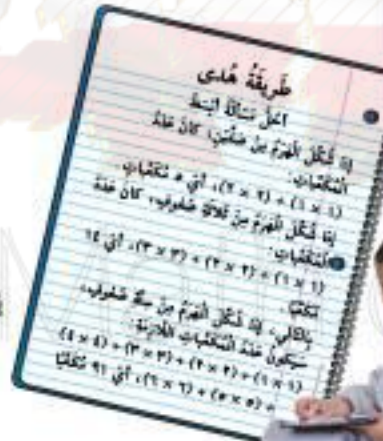 طَرِيقَةُ هُدى
أَحُلُّ مَسْأَلَةً أَبْسَطَ
إِذا شُكِّلَ الْهَرَمُ مِنْ صَفَّيْنِ، كانَ عَدَدُ
الْمُكَعَّباتِ:
(١ × ١) + (٢ × ٢)، أَيْ ٥ مُكَعَّباتٍ
إِذا شُكِّلَ الْهَرَمُ مِنْ ثَلاثَةِ صُفوفٍ، كانَ عَدَدُ
الْمُكَعَّباتِ:
(١ × ١) + (٢ × ٢) + (٣ × ٣)، أَيْ ١٤
مُكَعَّبًا.
بِالتّالي، إِذا شُكِّلَ الْهَرَمُ مِنْ سِتَّةِ صُفوفٍ،
سَيَكونُ عَدَدُ الْمُكَعَّباتِ اللّازِمَةِ:
(١ × ١) + (٢ × ٢) + (٣ × ٣) + (٤ × ٤)
+ (٥ × ٥) + (٦ × ٦)، أَيْ ٩١ مُكَعَّبًا